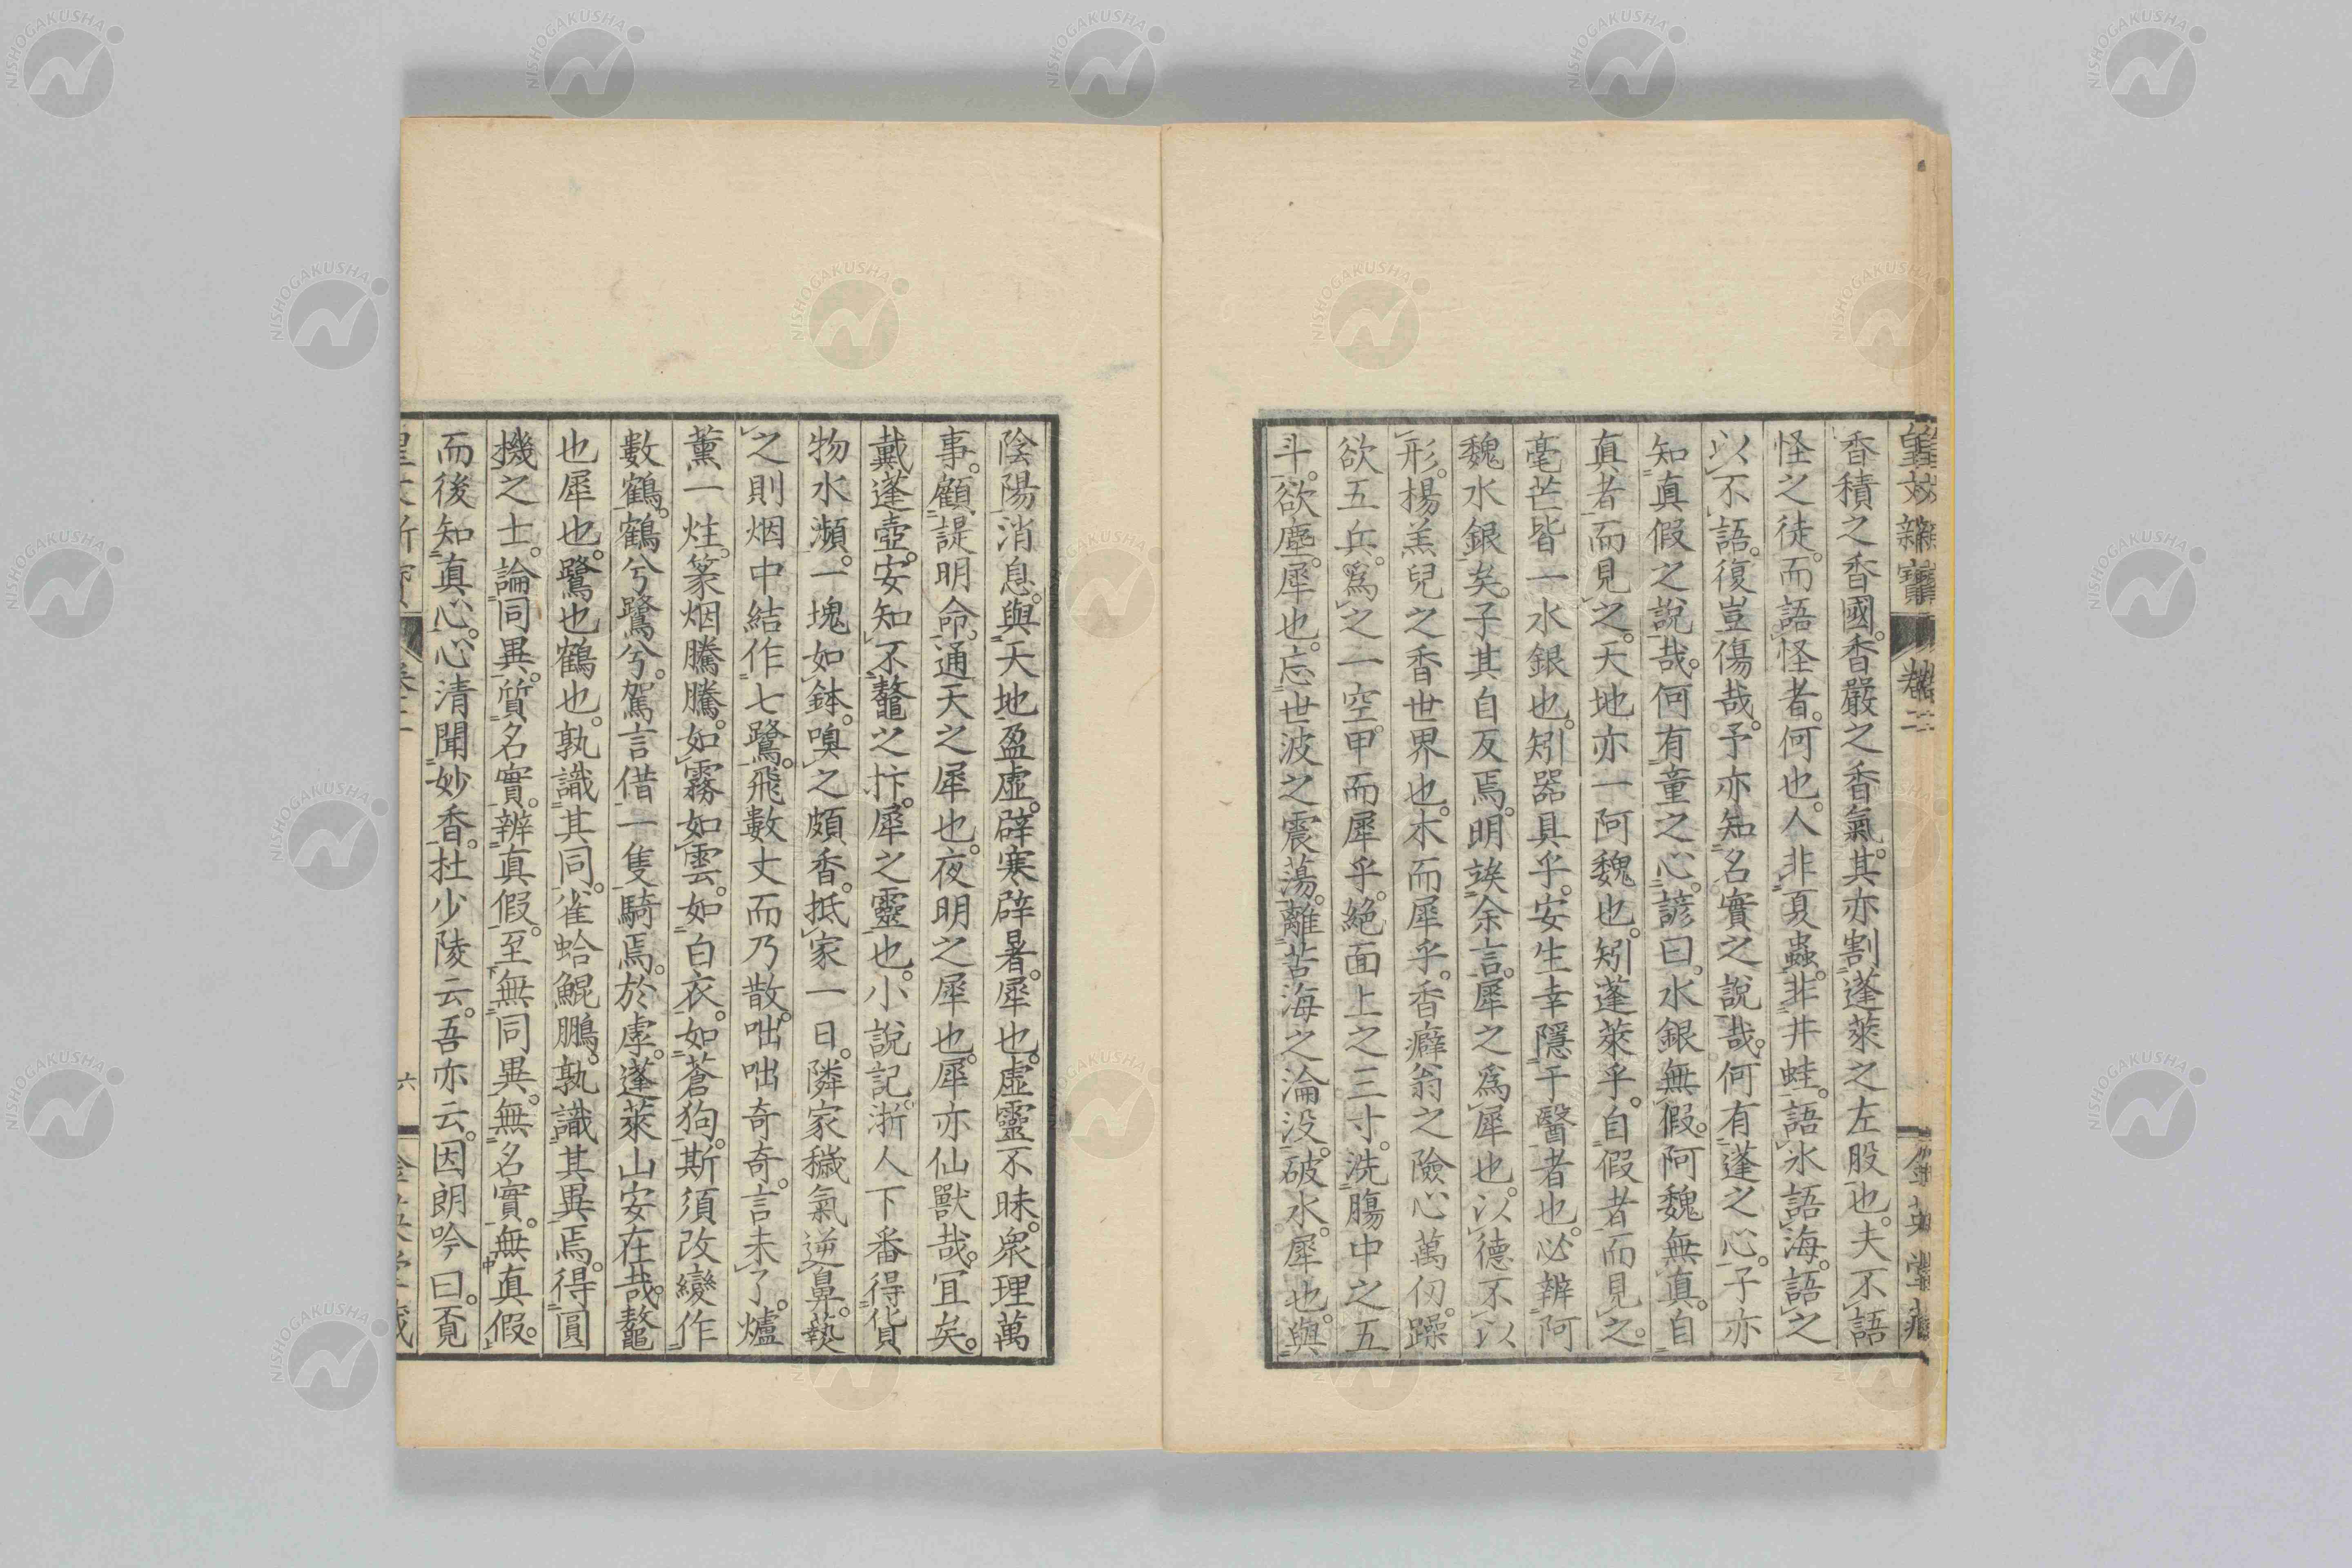 香積之香國。香嚴之香氣。其亦割蓬萊之左股也。夫不語
怪之徒。而語怪者。何也。人非夏蟲。非井蛙。語氷語海。語之
以不語。復豈傷哉。予亦知名實之說哉。何有蓬之心。子亦
知真假之說哉。何有童之心。諺曰。水銀無假。阿魏無真。自
真者而見之。天地亦一阿魏也。矧蓬萊乎。自假者而見之。
毫芒皆一水銀也。矧器具乎。安生幸隱于醫者也。必辨阿
魏水銀矣。子其自反焉。明誒余言。犀之為犀也。以德不以
形。楊羔兒之香世界也。木而犀乎。香癖翁之險心萬仞。躁
欲五兵。爲之一空。甲而犀乎。絕面上之三寸。洗膓中之五
斗。欲塵。犀也。忘世波之震蕩。離苦海之淪没。破水。犀也。與
陰陽消息。與天地盈虛。辟寒辟暑。犀也。虛靈不昧。衆理萬
事。顧諟明命。通天之犀也。夜明之犀也。犀亦仙獸哉。宜矣。
戴蓬壺。安知不鼇之抃。犀之靈也。小說記。浙人下番得貨
物水瀕。一塊如鉢。嗅之頗香。抵家一日。隣家穢氣逆鼻。蓺
之則烟中結作七鷺。飛數丈而乃散。咄咄奇奇。言未了。爐
薰一炷。篆烟騰騰。如霧如雲。如白衣。如蒼狗。斯須改變作
數鶴。鶴兮鷺兮。駕言借一隻騎焉。於虖。蓬萊山安在哉。鼇
也犀也。鷺也鶴也。孰識其同。雀蛤鯤鵬。孰識其異焉。得圓
機之士。論同異。質名實。辨真假。至無同異。無名實。無真假。
而後知真心。心清聞妙香。杜少陵云。吾亦云。因朗吟曰。覔
六
卷二